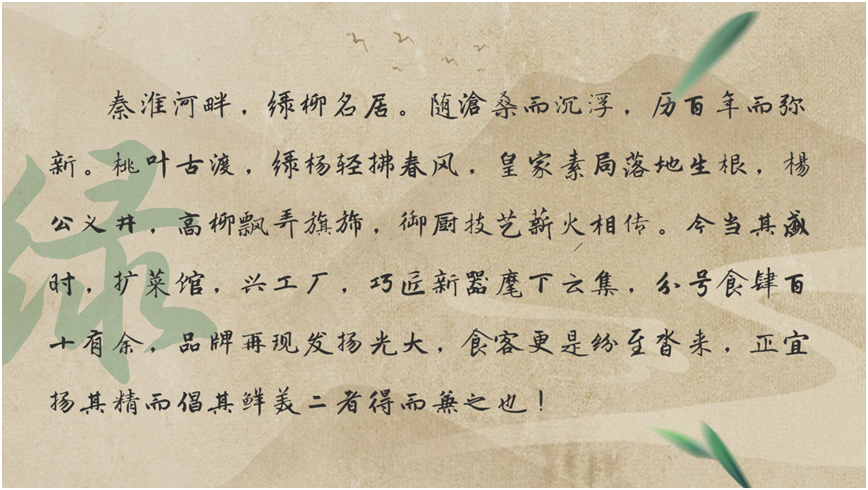 秦淮河畔，绿柳名居。随滄桑而沉浮，历百年而弥
新。桃叶古渡，绿杨轻拂春风，皇家素局落地生根，楊
公义井，高柳飘弄旗旆，御厨技艺薪火相传。今当其盛
时，扩菜馆，兴工厂，巧匠新器麾下云集，分号食肆百
十有余，品牌再现发扬光大，食客更是纷至沓来，正宜
扬其精而倡其鲜美二者得而兼之也！
绿